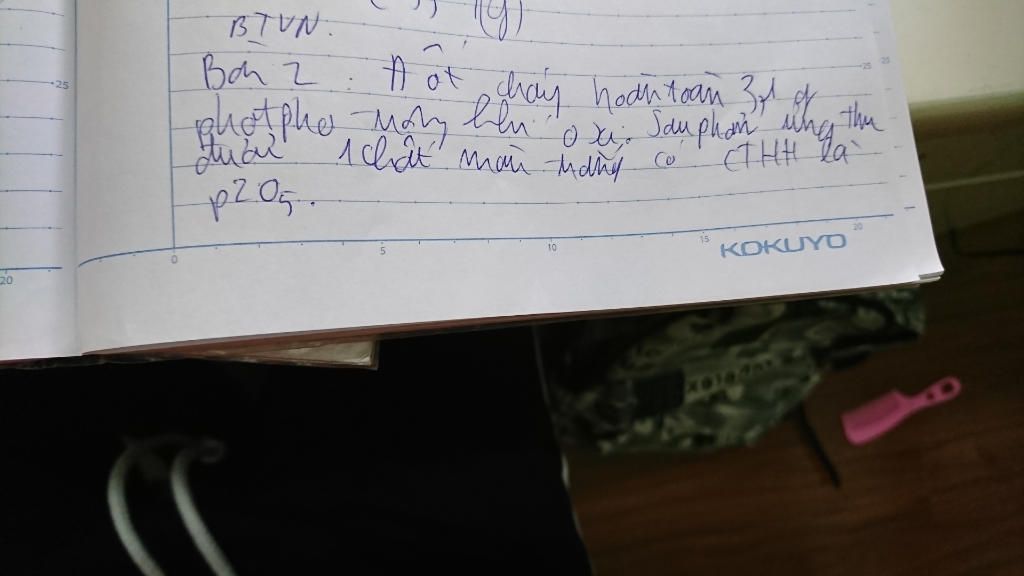 BTVN.
Bài 2: Đốt cháy hoàn toàn 3,1 g
photpho trong bình oxi. Sau phản ứng thu
được 1 chất màu trắng có CTHH là
P2O5.
25
25
25
20
0
5
10
15
20
KOKUYO